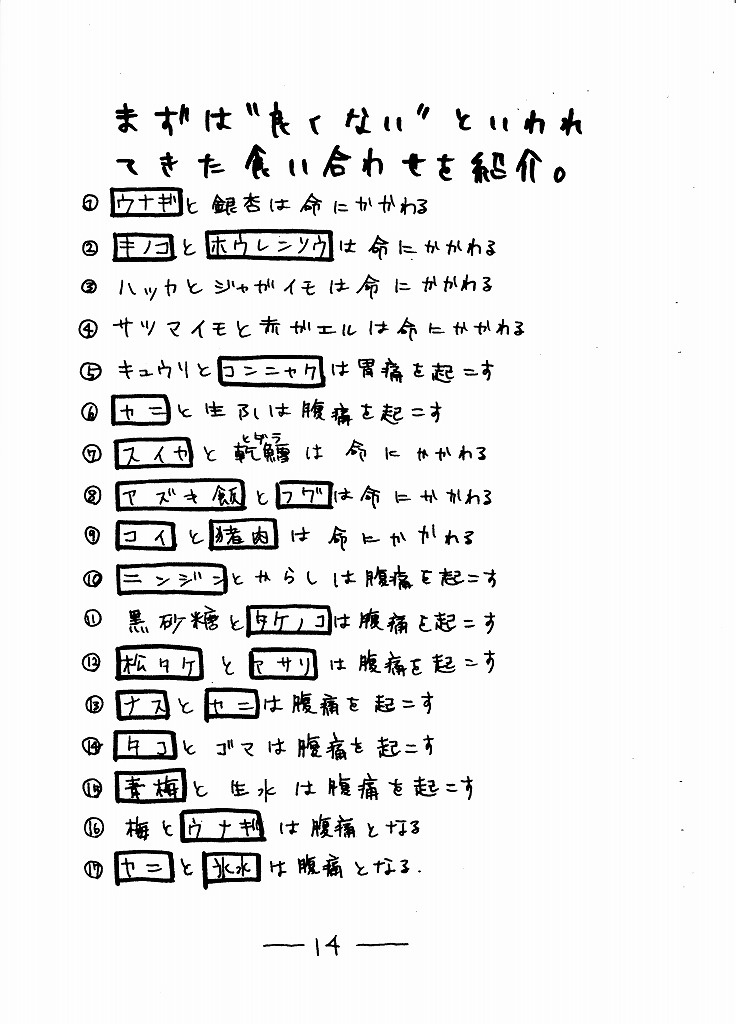 まずは"良くない"といわれ
てきた食い合わせを紹介。
① ウナギと銀杏は命にかかわる
② キノコとホウレンソウは命にかかわる
③ ハッカとジャガイモは命にかかわる
④ サツマイモと赤ガエルは命にかかわる
⑤ キュウリとコンニャクは胃痛を起こす
⑥ カニと生ぶしは腹痛を起こす
とダラ
⑦ スイカと乾鱈は命にかかわる
⑧ アズキ飯とフグは命にかかわる
⑨ コイと猪肉は命にかかわる
⑩ ニンジンとからしは腹痛を起こす
⑪ 黒砂糖とタケノコは腹痛を起こす
⑫ 松タケとアサリは腹痛を起こす
⑬ ナスとカニは腹痛を起こす
⑭ タコとゴマは腹痛を起こす
⑮ 青梅と生水は腹痛を起こす
⑯ 梅とウナギは腹痛となる
⑰ カニと氷水は腹痛となる.
— 14 —